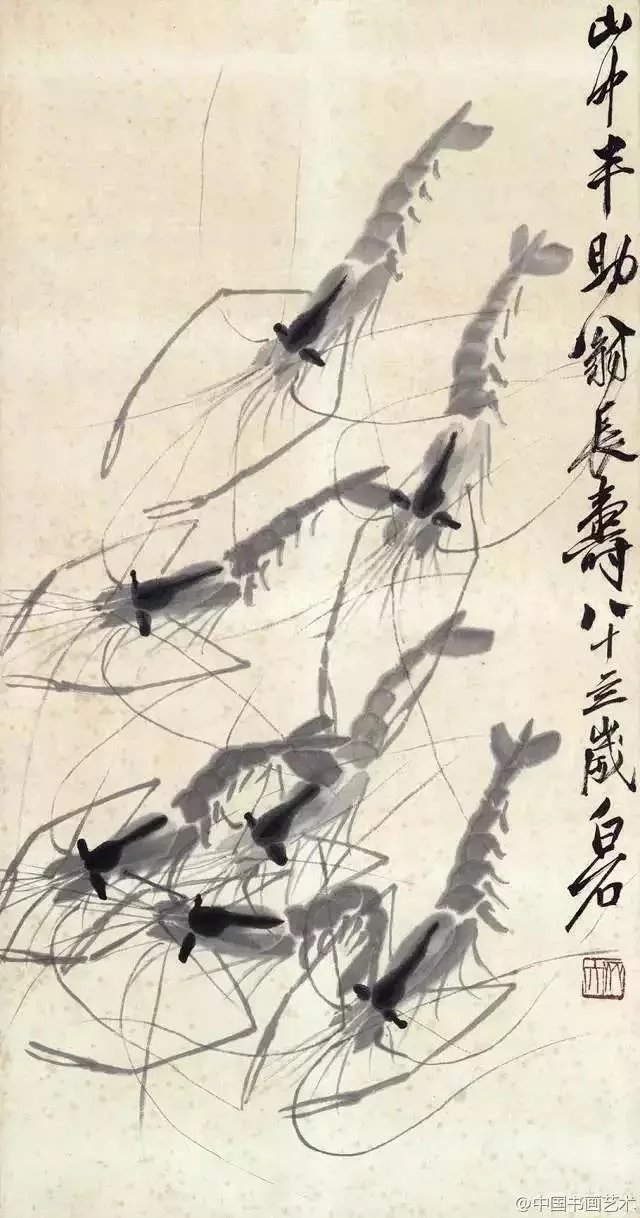 山中丰助翁長壽八十三歲白石
@中国书画艺术